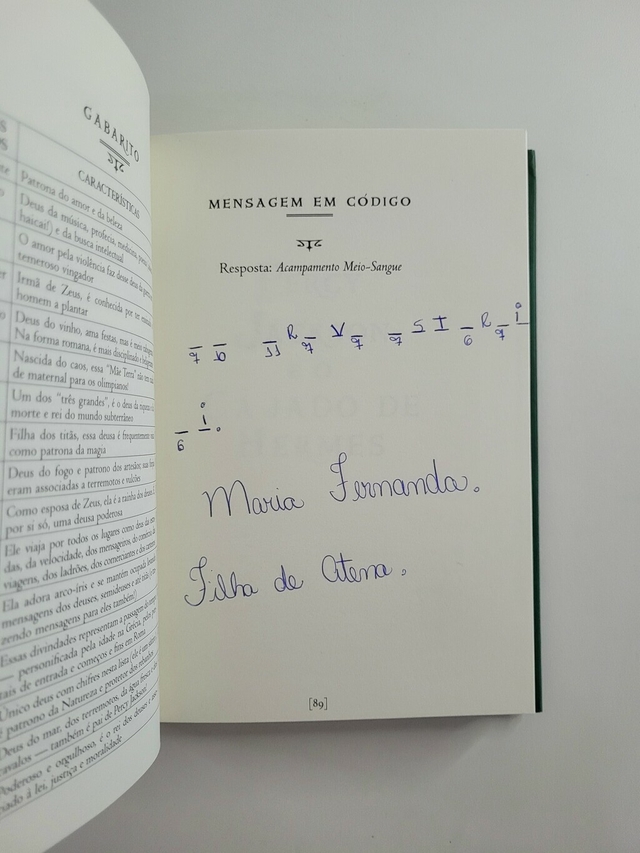 GABARITO
CARACTERÍSTICAS
Patrona do amor e da beleza
Deus da música, profecia, medicina,
haicai!) e da busca intelectual
O amor pela violência faz desse deus da guerra
temeroso vingador
Irmã de Zeus, é conhecida por ter ensinado
homem a plantar
Deus do vinho, ama festas, mas é meio
Na forma romana, é mais disciplinado e
Nascida do caos, essa "Mãe Terra" não tem nada
de maternal para os olimpianos!
Um dos "três grandes", é o deus da riqueza, da
morte e rei do mundo subterrâneo
Filha dos titãs, essa deusa é frequentemente
como patrona da magia
Deus do fogo e patrono dos artesãos, suas
eram associadas a terremotos e vulcões
Como esposa de Zeus, ela é a rainha dos deuses
por si só, uma deusa poderosa
Ele viaja por todos os lugares como deus das
das, da velocidade, dos mensageiros, do comércio, das
viagens, dos ladrões, dos comerciantes e dos
Ela adora arco-íris e se mantém ocupada levando
mensagens dos deuses, semideuses e
zendo mensagens para eles também!)
Essas divindades representam a passagem do tempo
— personificada pela idade na Grécia, pelos
tais de entrada e começos e fins em Roma
Único deus com chifres nesta lista (ele é um
é patrono da Natureza e protetor dos rebanhos
Deus do mar, dos terremotos, da água fresca e dos
cavalos — também é pai de Percy Jackson!
Poderoso e orgulhoso, é o rei dos deuses e
pado à lei, justiça e moralidade
MENSAGEM EM CÓDIGO
Resposta: Acampamento Meio-Sangue
Maria Fernanda.
Filha de Atena.
[89]